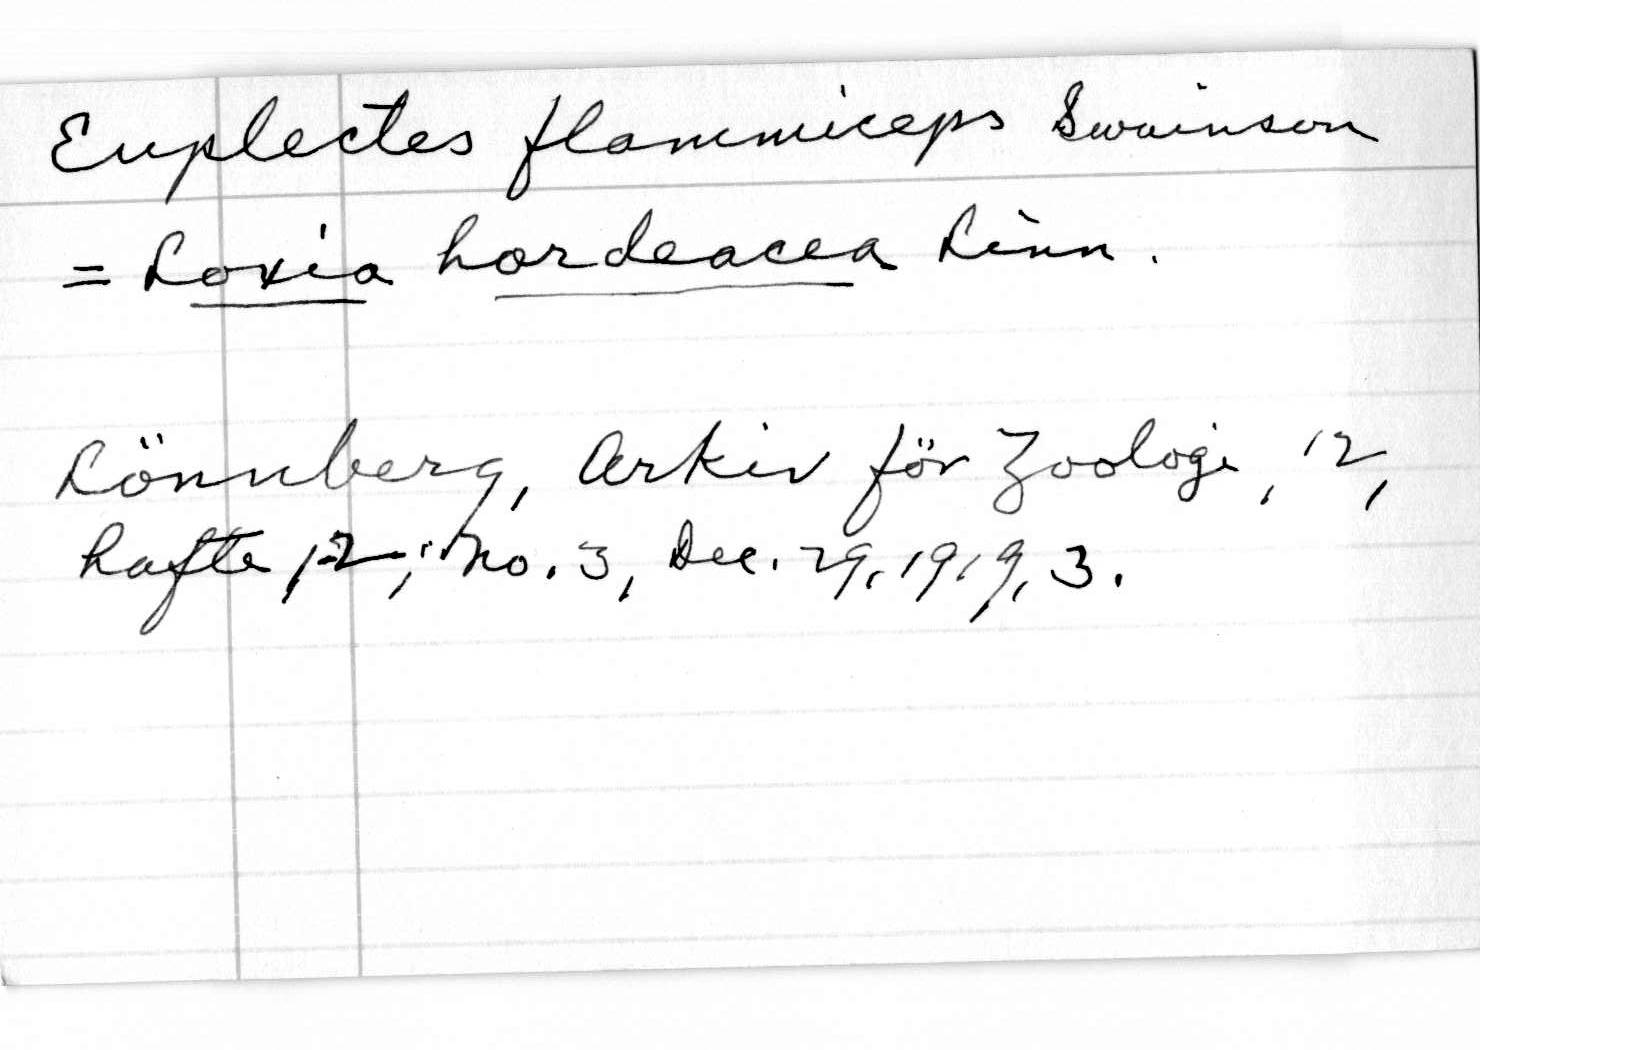 Euplectes flammiceps Swainson
= Loxia hordeacea Linn.
Lönnberg, Arkiv för Zoologi, 12,
hafte 1-2, no. 3, Dec. 29, 1919, 3.